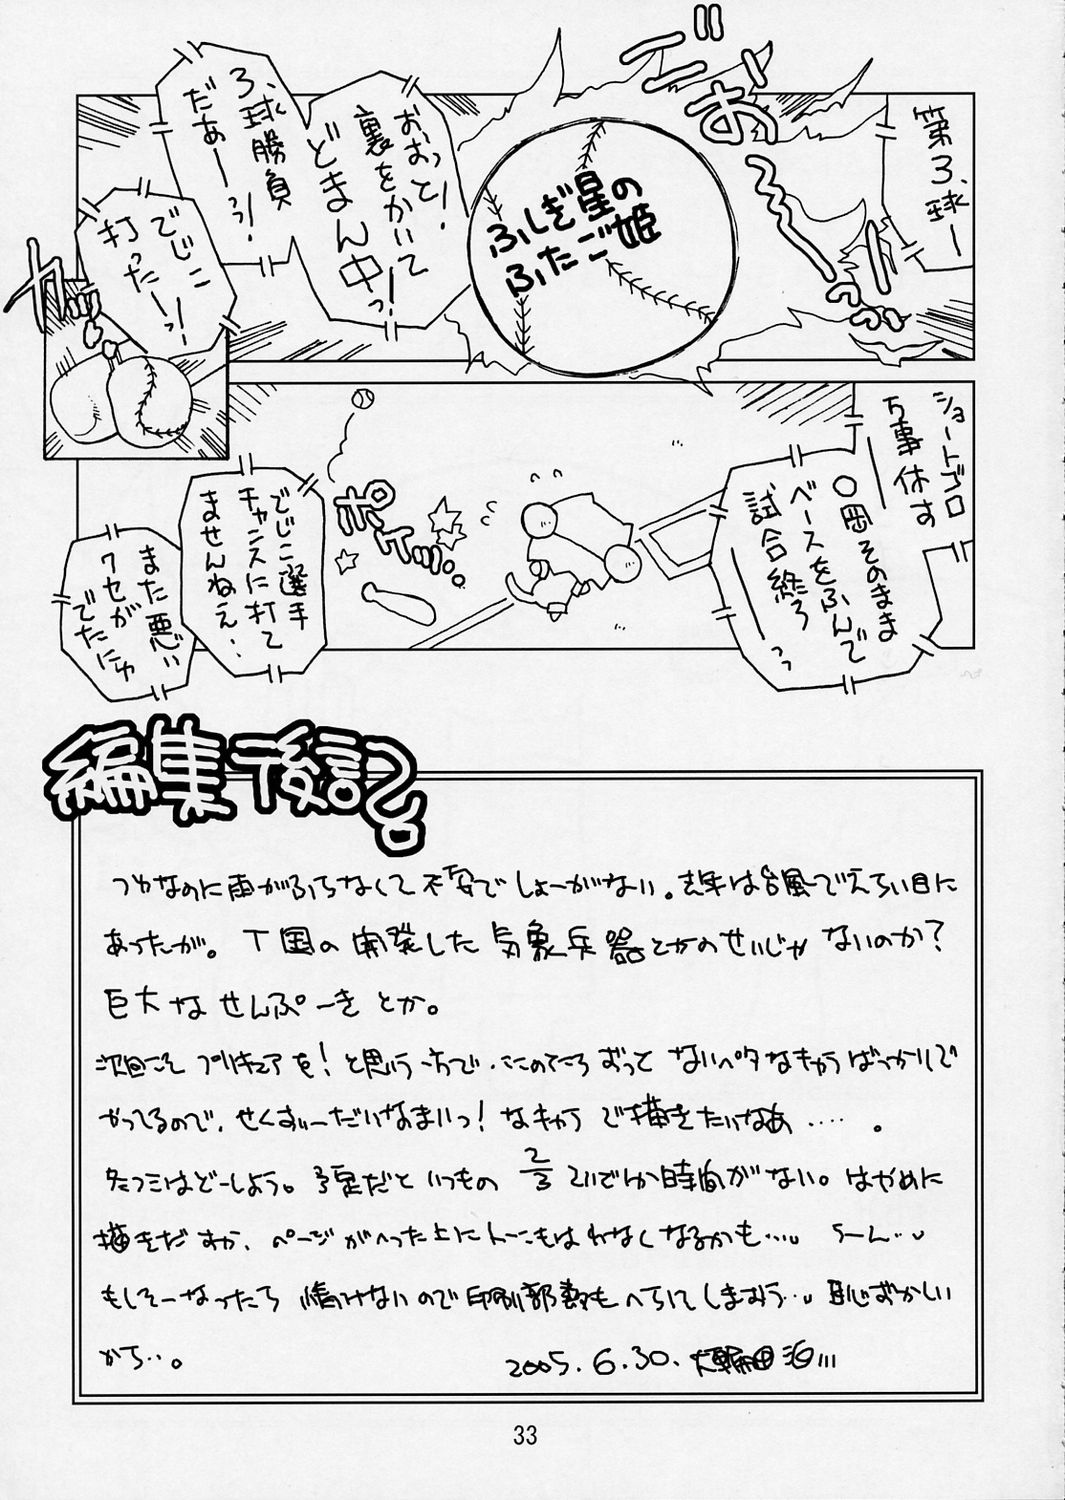 第3球ー
ゴおーーーっっ
ふしぎ星の
ふたご姫
おおっと!
裏をかいて
どまん中っ!
3球勝負
だあーっっ!
でじこ
打ったーっ!
カッ
ショートゴロ
万事休す
〇岡そのまま
ベースをふんで
試合終了ーっっ
ポケッ…
でじこ選手
チャンスに打て
ませんねえ…
また悪い
クセが
でたにゅ
編集後記
つゆなのに雨がふらなくて不安でしょーがない。去年は台風でえらい目に
あったが。T国の開発した気象兵器とかのせいじゃないのか?
巨大なせんぷーきとか。
次回こそプリキュアを!と思う一方で、ここのところずっとないペタなキャラばっかりで
やってるので、せくすぃーだいなまいつ!なキャラで描きたいなあ…。
夏コミはどーしよう。予定だといつもの2/3くらいでか時間がない。はやめに
描きだすか、ページがへった上にトーンもはれなくなるかも…。うーん…
もしそーなったら情けないので印刷部数もへらしてしまおう…恥ずかしい
から…。
2005.6.30.大輪田泊
33